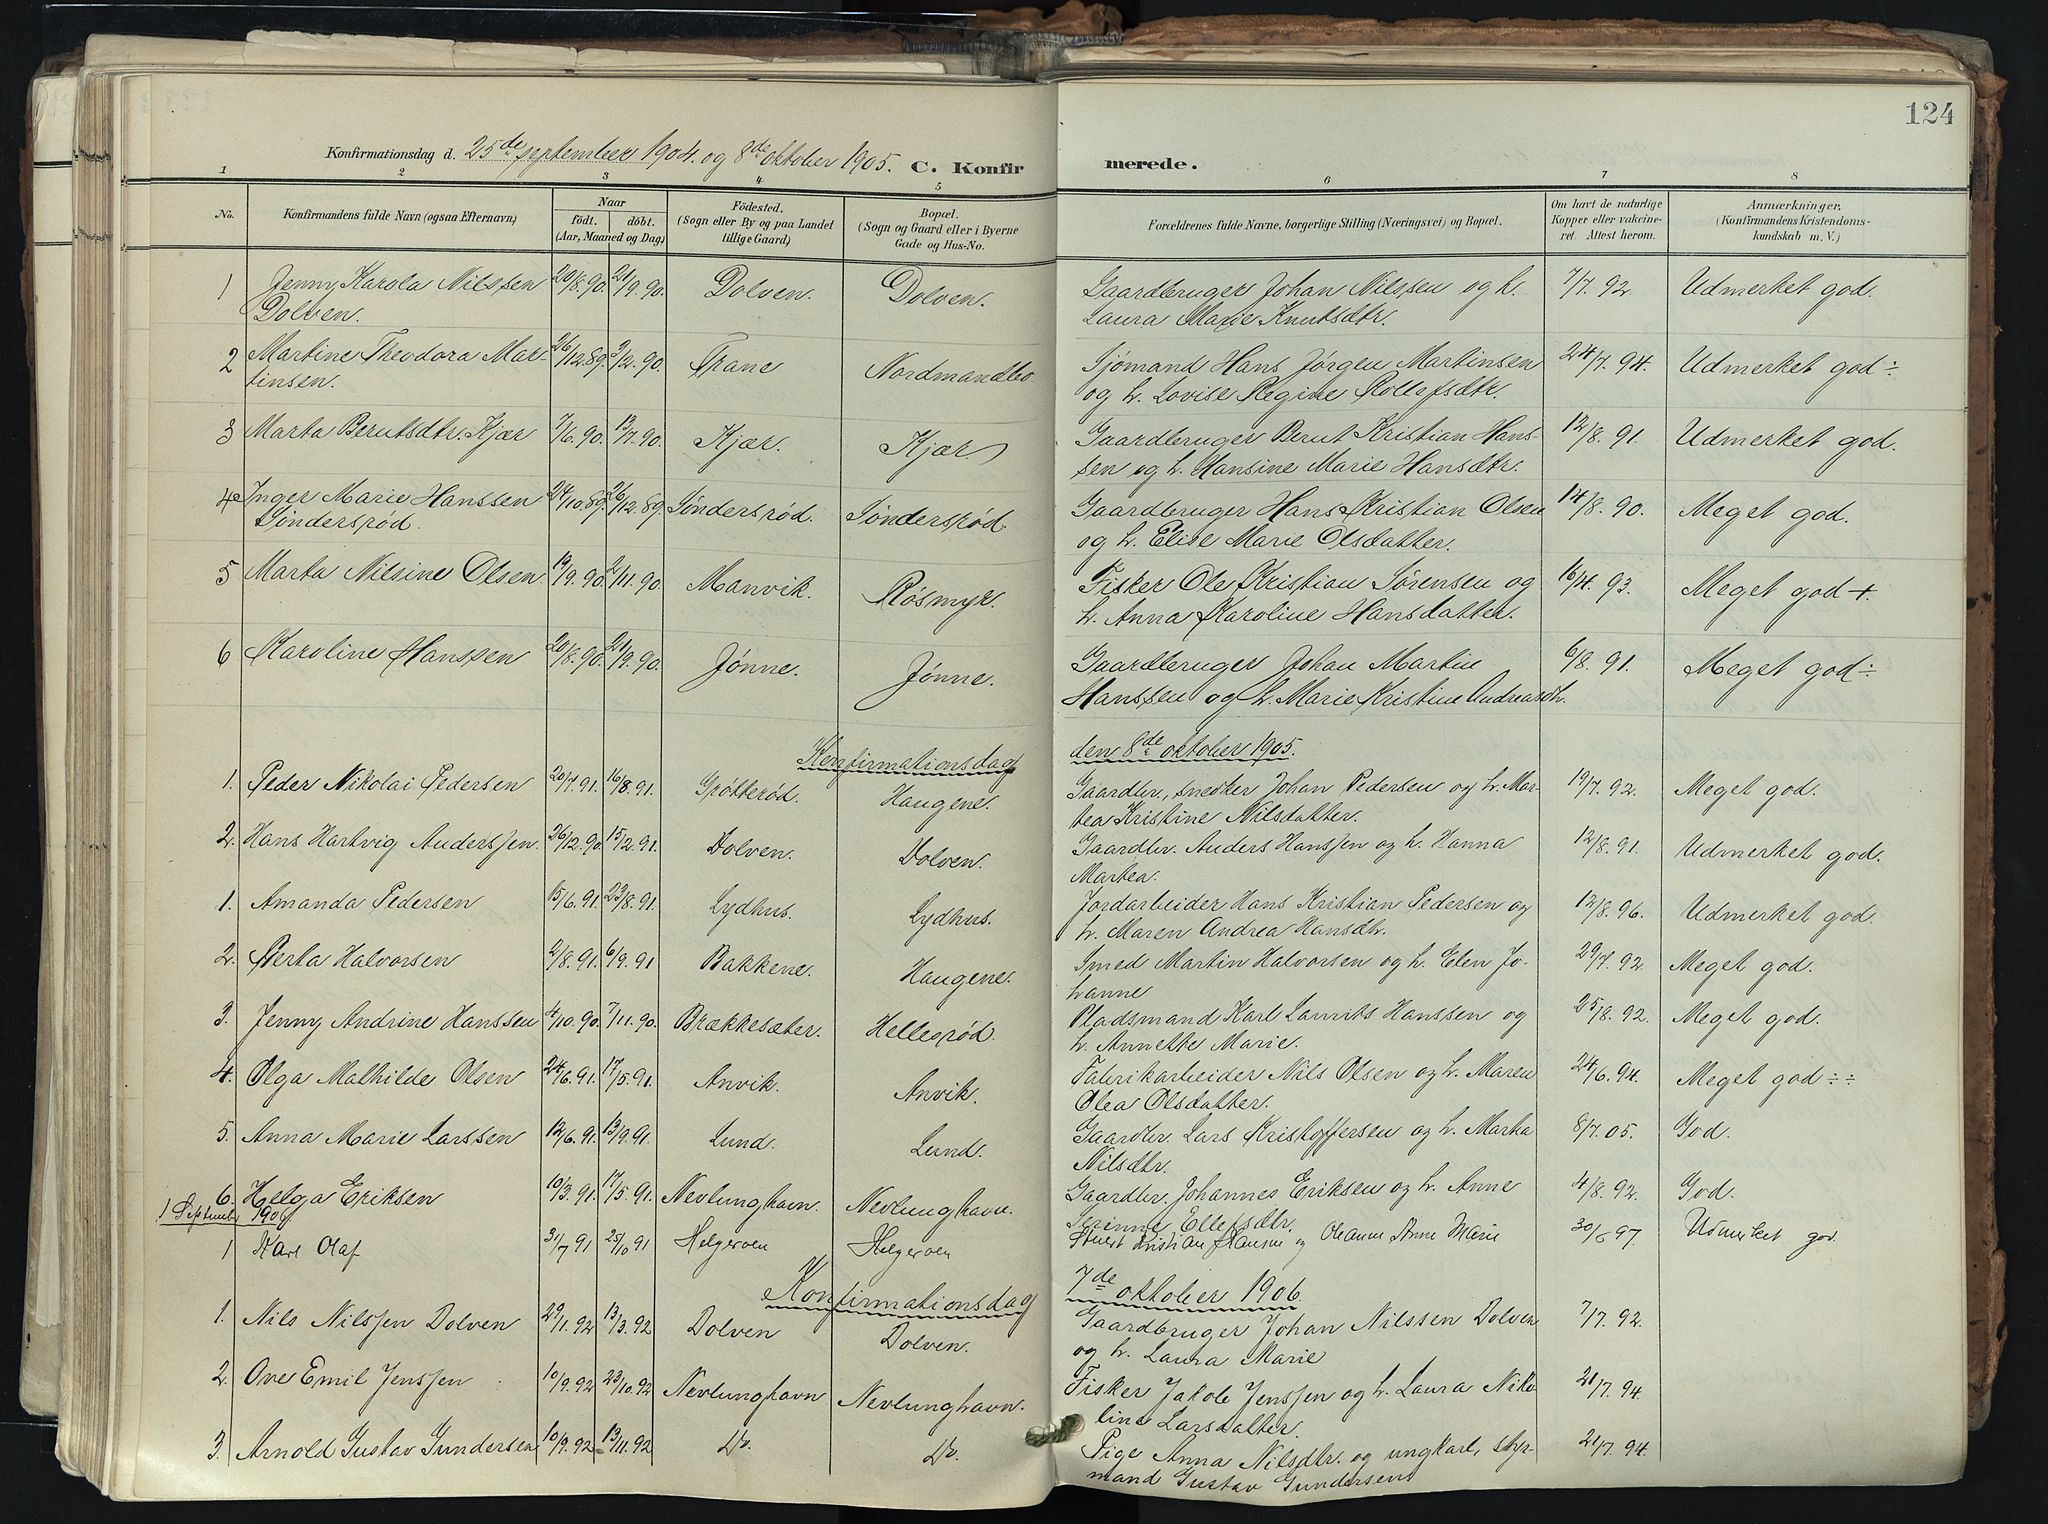 124
Konfirmationsdag d. 25de september 1904. og 8de oktober 1905. C. Konfirmerede.
1 2 3 4 5 6 7 8
No. Konfirmandens fulde Navn (ogsaa Efternavn) Naar födt. döbt. (Aar, Maaned og Dag) Födested. (Sogn eller By og paa Landet tillige Gaard) Bopæl. (Sogn og Gaard eller i Byerne Gade og Hus-No. Forældrenes fulde Navne, borgerlige Stilling (Næringsvei) og Bopæl. Om havt de naturlige Kopper eller vakcineret. Attest herom. Anmærkninger. (Konfirmandens Kristendomskundskab m. V.)
1 Jenny Karola Nilssen 20/8.90. 21/9.90. Dolven. Dolven. Gaardbruger Johan Nilssen og h. 7/7.92. Udmerket god.
Dolven. Laura Marie Knutsdtr.
2 Martine Theodora Mar- 26/12.89. 9/2.90. Trane Nordmandbo. Sjømand Hans Jørgen Martinsen 24/7.94. Udmerket god ÷
tinsen. og h. Lovise Regine Rollefsdtr.
3 Marta Berntsdtr. Kjær 7/6.90. 13/7.90. Kjær. Kjær Gaardbruger Bernt Kristian Hans- 12/8.91. Udmerket god.
sen og h. Hansine Marie Hansdtr.
4 Inger Marie Hanssen 24/10.89. 26/12.89. Søndersrød. Søndersrød. Gaardbruger Hans Kristian Olsen 14/8.90. Meget god.
Søndersrød. og h. Elise Marie Olsdatter.
5 Marta Nilsine Olsen. 19/9.90. 2/11.90. Manvik. Røsmyr. Fisker Ole Kristian Sørensen og 16/4.93. Meget god +.
h. Anna Karoline Hansdatter.
6 Karoline Hanssen 20/8.90. 21/9.90. Jønne. Jønne. Gaardbruger Johan Martin 6/8.91. Meget god ÷
Hanssen og h. Marie Kristine Andreasdtr.
Konfirmationsdag den 8de oktober 1905.
1. Peder Nikolai Pedersen 20/7.91. 16/8.91. Grøtterød. Haugene. Gaardbr., snedker Johan Pedersen og h. Mar- 19/7.92. Meget god.
tea Kristine Nilsdatter.
2. Hans Hartvig Anderssen. 26/12.90. 15/2.91. Dolven. Dolven. Gaardbr. Anders Hanssen og h. Hanna 12/8.91. Udmerket god.
Martea.
1. Amanda Pedersen 15/6.91. 23/8.91. Lydhus. Lydhus. Jordarbeider Hans Kristian Pedersen og 12/8.96. Udmerket god.
h. Maren Andrea Hansdtr.
2. Berta Halvorsen 2/8.91. 6/9.91 Bakkene. Haugene. Smed Martin Halvorsen og h. Elen Jo- 29/7.92. Meget god.
hanne
3. Jenny Andrine Hanssen 4/10.90. 7/11.90. Brækkesæter. Hellesrød. Pladsmand Karl Laurits Hanssen og 25/8.92. Meget god.
h. Annette Marie.
4. Olga Mathilde Olsen 24/6.91. 17/5.91. Anvik. Anvik. Fabrikarbeider Nils Olsen og h. Maren 24/6.94. Meget god ÷÷
Olea Olsdatter.
5. Anna Marie Larssen 12/6.91. 13/9.91. Lund. Lund. Gaardbr. Lars Kristoffersen og h. Marta 8/7.05. God.
Nilsdtr.
6. Helga Eriksen 10/3.91. 17/5.91. Nevlunghavn. Nevlunghavn. Gaardbr. Johannes Eriksen og h. Anne 4/8.92. God.
1 September 1906. Serinne Ellefsdtr.
1 Karl Olaf 31/7 91 25/10 91 Helgeroen Helgeroen Stuert Kristian Hansen og Oleanne Anne Marie 30/6 97. Udmerket god.
Konfirmationsdag 7de oktober 1906.
1. Nils Nilssen Dolven 29/1.92 13/3.92 Dolven Dolven. Gaardbruger Johan Nilssen Dolven 7/7.92.
og h. Laura Marie
2. Ove Emil Jenssen 10/9.92 23/10.92 Nevlunghavn Nevlunghavn. Fisker Jakob Jenssen og h. Laura Niko- 21/7.94
line Larsdatter.
3. Arnold Gustav Gundersen 10/9.92 13/11.92 Do. Do. Pige Anna Nilsdtr. og ungkarl, styr- 21/7.94.
mand Gustav Gundersen